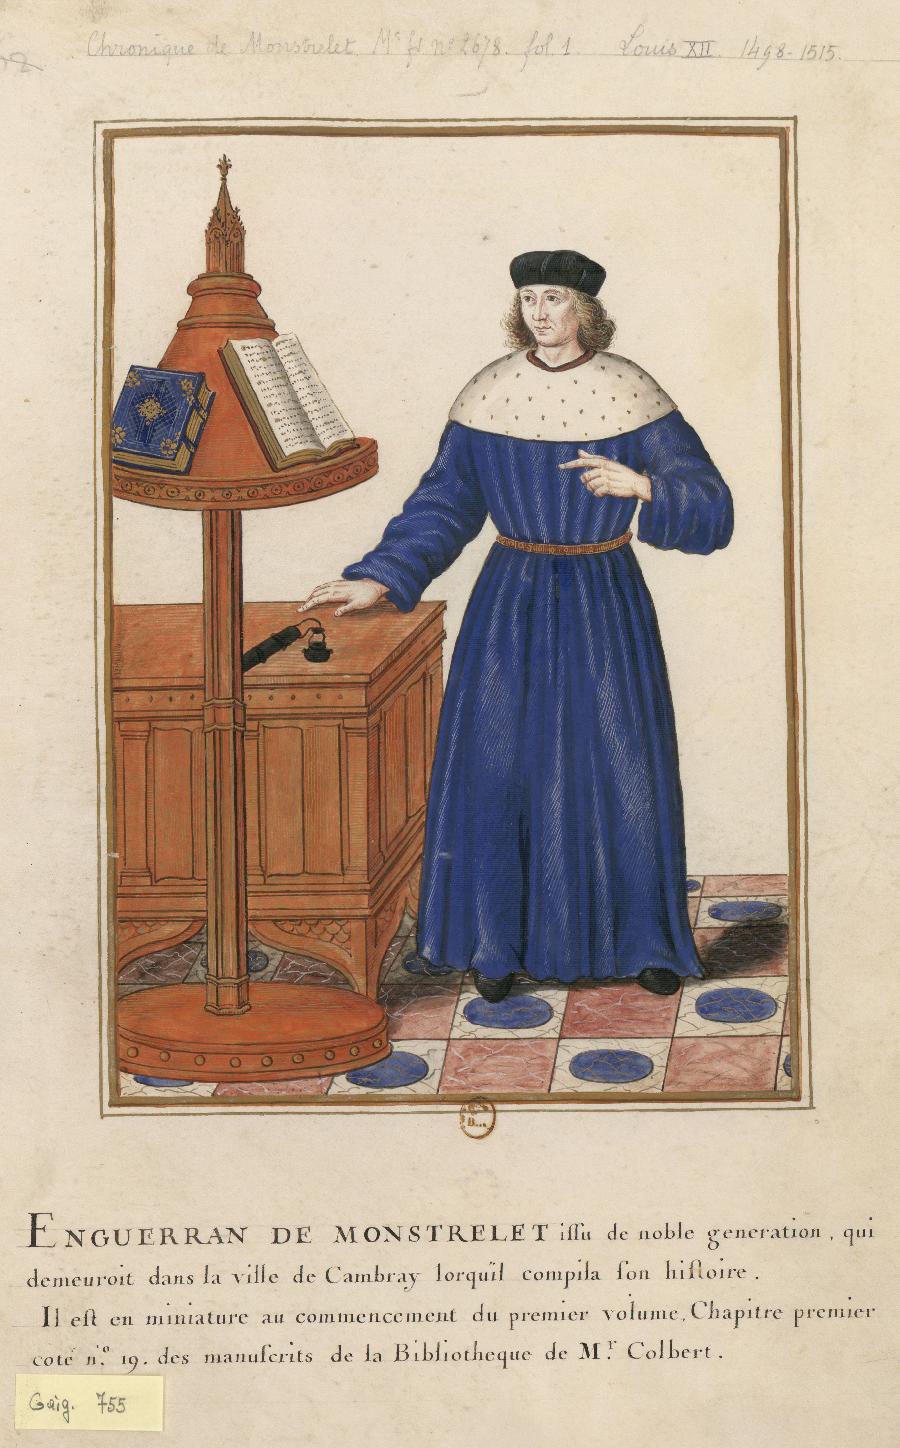 Chronique de Monstrelet. Ms fr nº 2678. fol. 1. Louis XII. 1498-1515.
B...
ENGUERRAN DE MONSTRELET iſſu de noble generation, qui
demeuroit dans la ville de Cambray lorquil compila ſon hiſtoire.
Il eſt en miniature au commencement du premier volume, Chapitre premier
coté n.º 19. des manuſcrits de la Bibliotheque de M.r Colbert.
Gaig. 755